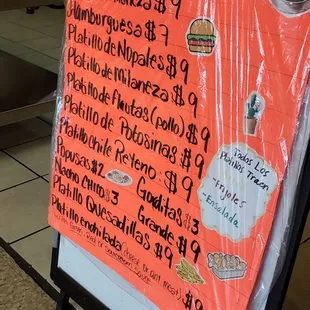 $9
Hamburguesa $7
Platillo de Nopales $9
Platillo de milaneza $9
Platillo de flautas (pollo) $9
Platillo de Potosinas $9
Platillo Chile Reyeno: $9
Pupusas $2
Gorditas $3
Nacho Chico $3
Grande $9
Platillo Quesadillas $9
Platillo enchilada $9
Todos Los
Platillos Traen
- Frijoles
- Ensalada